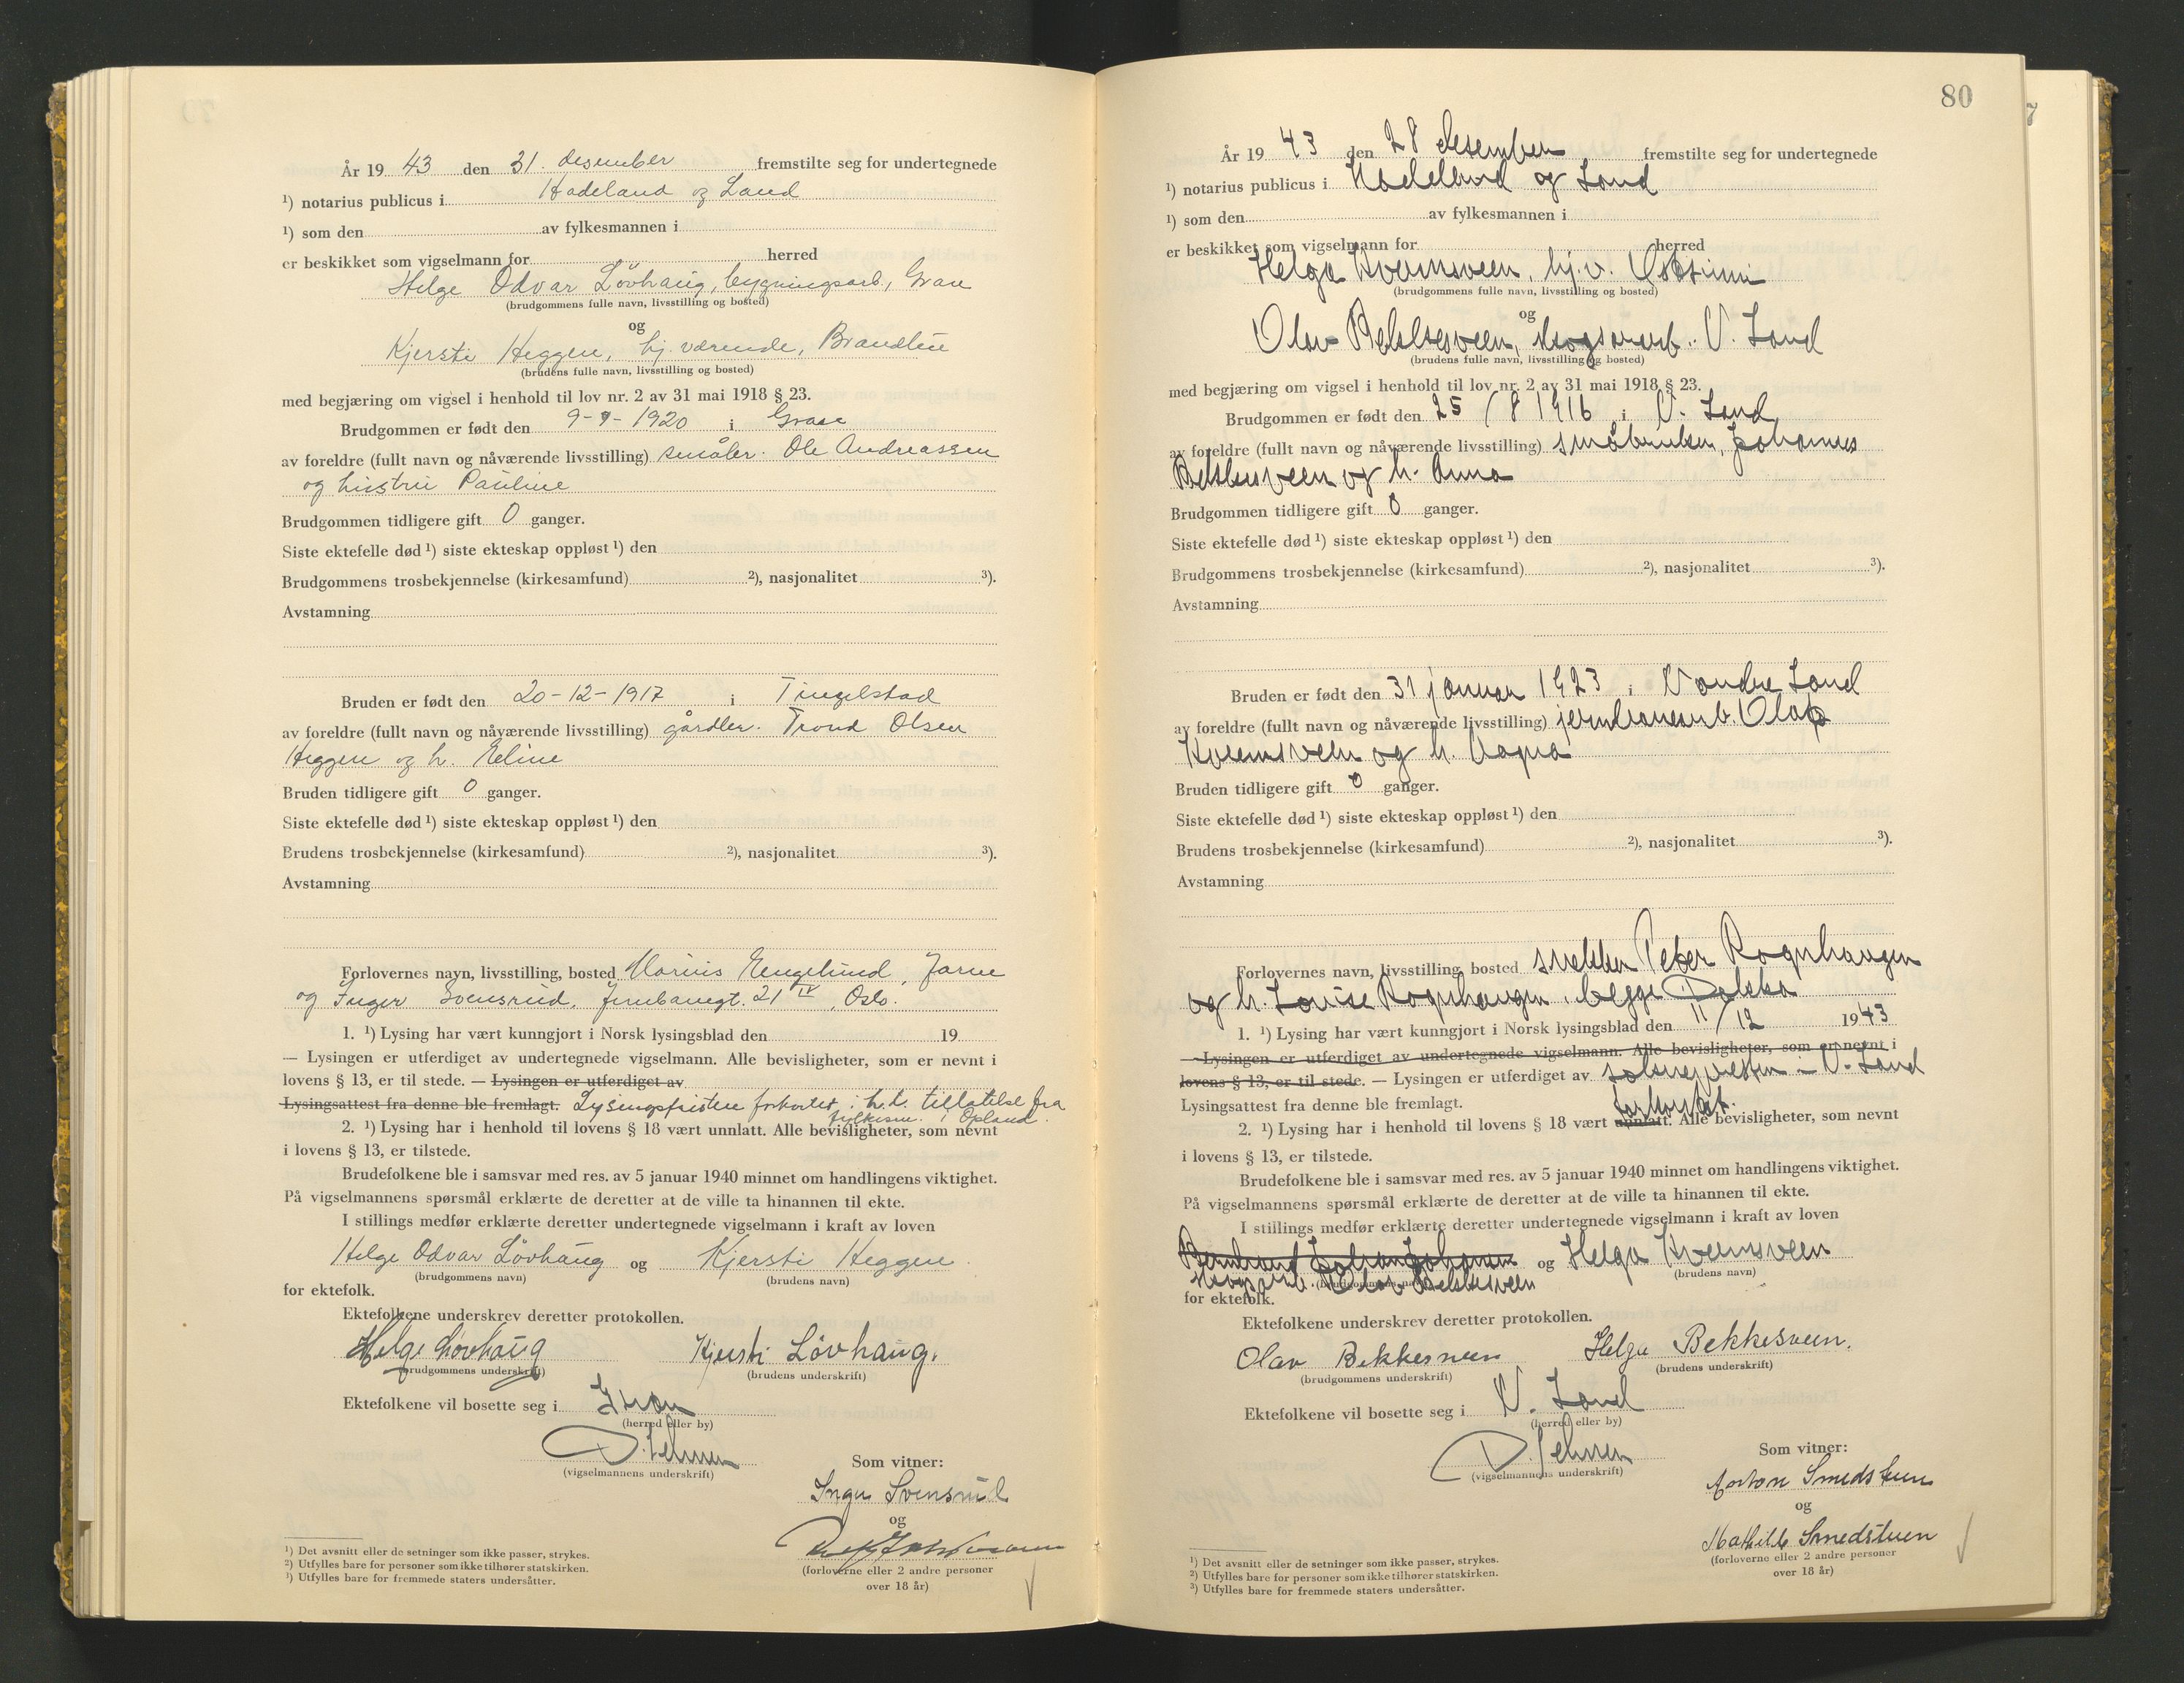 År 19 43 den 31. desember fremstilte seg for undertegnede
¹) notarius publicus i Hadeland og Land
¹) som den av fylkesmannen i
er beskikket som vigselmann for herred
Helge Odvar Lövhaug, bygningsarb., Gran
(brudgommens fulle navn, livsstilling og bosted)
og
Kjersti Heggen, hj. værende, Brandbu
(brudens fulle navn, livsstilling og bosted)
med begjæring om vigsel i henhold til lov nr. 2 av 31 mai 1918 § 23.
Brudgommen er født den 9-9-1920 i Gran
av foreldre (fullt navn og nåværende livsstilling) småbr. Ole Andreassen
og hustru Pauline
Brudgommen tidligere gift 0 ganger.
Siste ektefelle død ¹) siste ekteskap oppløst ¹) den
Brudgommens trosbekjennelse (kirkesamfund) ²), nasjonalitet ³).
Avstamning
Bruden er født den 20-12-1917 i Tingelstad
av foreldre (fullt navn og nåværende livsstilling) gårdbr. Trond Olsen
Heggen og h. Eline
Bruden tidligere gift 0 ganger.
Siste ektefelle død ¹) siste ekteskap oppløst ¹) den
Brudens trosbekjennelse (kirkesamfund) ²), nasjonalitet ³).
Avstamning
Forlovernes navn, livsstilling, bosted Marius Engelund, Jarne
og Inger Svensrud, Jernbanegt. 21 IV, Oslo.
1. ¹) Lysing har vært kunngjort i Norsk lysingsblad den 19
— Lysingen er utferdiget av undertegnede vigselmann. Alle bevisligheter, som er nevnt i
lovens § 13, er til stede. — Lysingen er utferdiget av
Lysingsattest fra denne ble fremlagt. Lysingsfristen forkortet i h.t. tillatelse fra
fylkesm. i Opland.
2. ¹) Lysing har i henhold til lovens § 18 vært unnlatt. Alle bevisligheter, som nevnt
i lovens § 13, er tilstede.
Brudefolkene ble i samsvar med res. av 5 januar 1940 minnet om handlingens viktighet.
På vigselmannens spørsmål erklærte de deretter at de ville ta hinannen til ekte.
I stillings medfør erklærte deretter undertegnede vigselmann i kraft av loven
Helge Odvar Lövhaug og Kjersti Heggen.
(brudgommens navn) (brudens navn)
for ektefolk.
Ektefolkene underskrev deretter protokollen.
Helge Lövhaug Kjersti Lövhaug.
(brudgommens underskrift) (brudens underskrift)
Ektefolkene vil bosette seg i Gran
(herred eller by)
(vigselmannens underskrift)
Som vitner:
Inger Svensrud
og
(forloverne eller 2 andre personer
over 18 år)
¹) Det avsnitt eller de setninger som ikke passer, strykes.
²) Utfylles bare for personer som ikke tilhører statskirken.
³) Utfylles bare for fremmede staters undersåtter.
80
År 19 43 den 28 desember fremstilte seg for undertegnede
¹) notarius publicus i Hadeland og Land
¹) som den av fylkesmannen i
er beskikket som vigselmann for herred
Helga Kvemsveen, hj.v.
(brudgommens fulle navn, livsstilling og bosted)
og
Olav Bekkesveen, skogsarb. V. Land
(brudens fulle navn, livsstilling og bosted)
med begjæring om vigsel i henhold til lov nr. 2 av 31 mai 1918 § 23.
Brudgommen er født den 25/8 1916 i V. Land
av foreldre (fullt navn og nåværende livsstilling) småbruker Johannes
Bekkesveen og h. Anna
Brudgommen tidligere gift 0 ganger.
Siste ektefelle død ¹) siste ekteskap oppløst ¹) den
Brudgommens trosbekjennelse (kirkesamfund) ²), nasjonalitet ³).
Avstamning
Bruden er født den 31 januar 1923 i Nordre Land
av foreldre (fullt navn og nåværende livsstilling) jernbanearb. Olaf
Kvemsveen og h. Dagna
Bruden tidligere gift 0 ganger.
Siste ektefelle død ¹) siste ekteskap oppløst ¹) den
Brudens trosbekjennelse (kirkesamfund) ²), nasjonalitet ³).
Avstamning
Forlovernes navn, livsstilling, bosted snekker Peter Rognhaugen
og h. Louise Rognhaugen, begge Dokka
1. ¹) Lysing har vært kunngjort i Norsk lysingsblad den 11/12 1943
— Lysingen er utferdiget av undertegnede vigselmann. Alle bevisligheter, som er nevnt i
lovens § 13, er til stede. — Lysingen er utferdiget av soknepresten i V. Land
Lysingsattest fra denne ble fremlagt.
forkortet.
2. ¹) Lysing har i henhold til lovens § 18 vært unnlatt. Alle bevisligheter, som nevnt
i lovens § 13, er tilstede.
Brudefolkene ble i samsvar med res. av 5 januar 1940 minnet om handlingens viktighet.
På vigselmannens spørsmål erklærte de deretter at de ville ta hinannen til ekte.
I stillings medfør erklærte deretter undertegnede vigselmann i kraft av loven
og Helga Kvemsveen
skogsarb. Olav Bekkesveen
(brudgommens navn) (brudens navn)
for ektefolk.
Ektefolkene underskrev deretter protokollen.
Olav Bekkesveen Helga Bekkesveen.
(brudgommens underskrift) (brudens underskrift)
Ektefolkene vil bosette seg i V. Land
(herred eller by)
(vigselmannens underskrift)
Som vitner:
Anton Smedstuen
og
Mathilde Smedstuen
(forloverne eller 2 andre personer
over 18 år)
¹) Det avsnitt eller de setninger som ikke passer, strykes.
²) Utfylles bare for personer som ikke tilhører statskirken.
³) Utfylles bare for fremmede staters undersåtter.